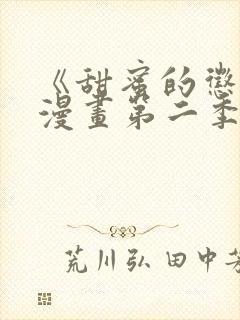 《甜蜜的懲
漫畫第二季
荒川弘 田中芳